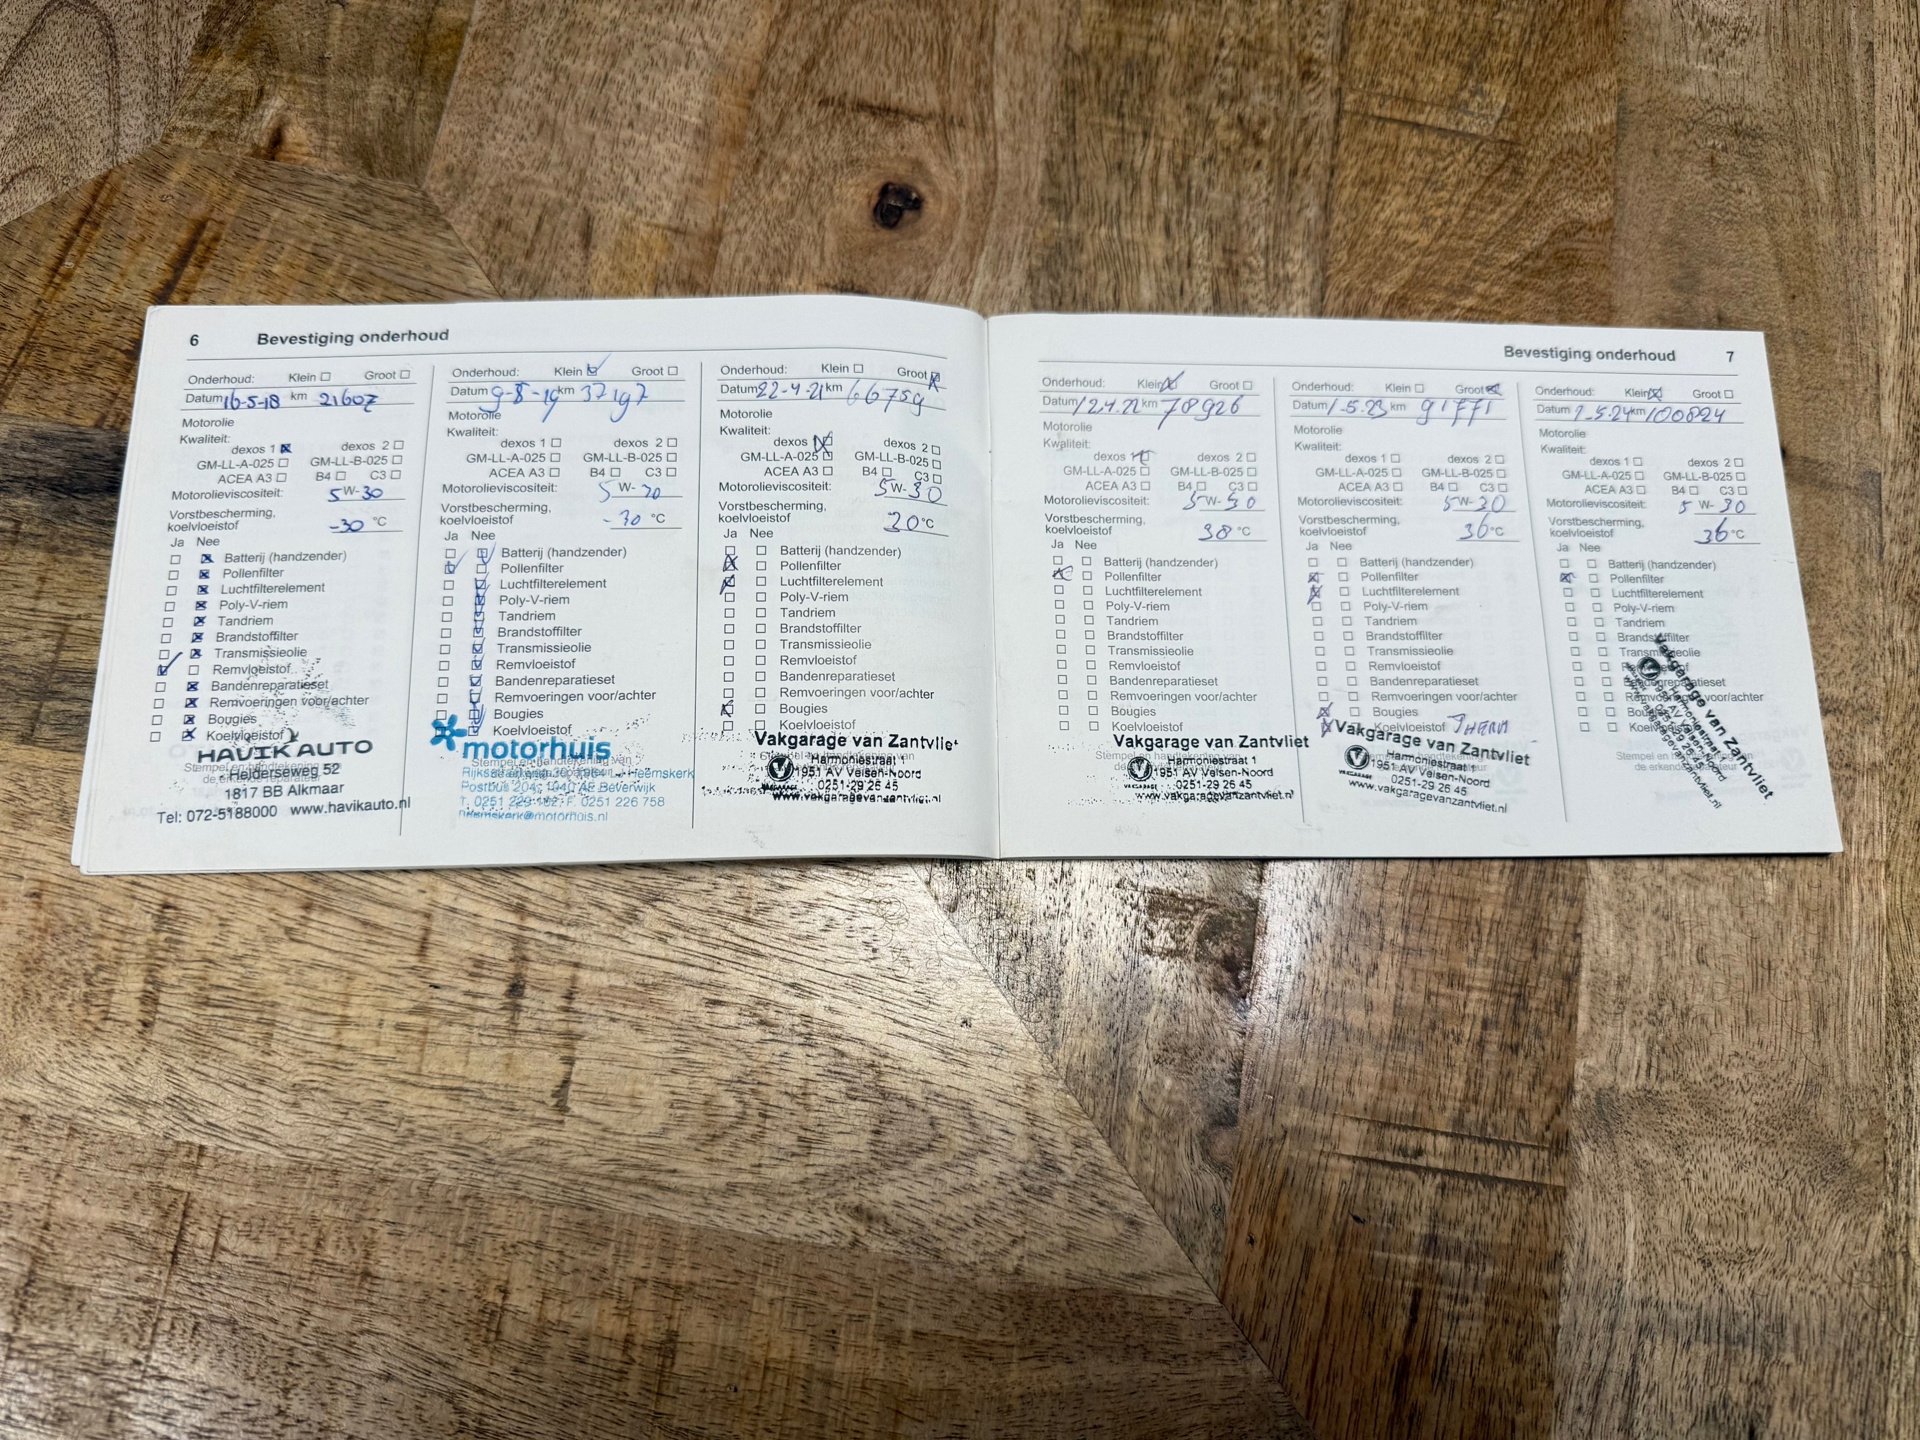 6 Bevestiging onderhoud
Onderhoud: Klein Groot
Datum 16-5-18 km 21607
Motorolie
Kwaliteit:
dexos 1 dexos 2
GM-LL-A-025 GM-LL-B-025
ACEA A3 B4 C3
Motorolieviscositeit: 5W-30
Vorstbescherming,
koelvloeistof -30 °C
Ja Nee
Batterij (handzender)
Pollenfilter
Luchtfilterelement
Poly-V-riem
Tandriem
Brandstoffilter
Transmissieolie
Remvloeistof
Bandenreparatieset
Remvoeringen voor/achter
Bougies
Koelvloeistof
HAVIK AUTO
Helderseweg 52
1817 BB Alkmaar
Tel: 072-5188000 www.havikauto.nl
Onderhoud: Klein Groot
Datum 9-8-19 km 37197
Motorolie
Kwaliteit:
dexos 1 dexos 2
GM-LL-A-025 GM-LL-B-025
ACEA A3 B4 C3
Motorolieviscositeit: 5 W-
Vorstbescherming,
koelvloeistof -30 °C
Ja Nee
Batterij (handzender)
Pollenfilter
Luchtfilterelement
Poly-V-riem
Tandriem
Brandstoffilter
Transmissieolie
Remvloeistof
Bandenreparatieset
Remvoeringen voor/achter
Bougies
Koelvloeistof
motorhuis
Heemskerk
Postbus 204, 1940 AE Beverwijk
T. 0251 229 F. 0251 226 758
heemskerk@motorhuis.nl
Onderhoud: Klein Groot
Datum 22-4-21 km 66759
Motorolie
Kwaliteit:
dexos 1 dexos 2
GM-LL-A-025 GM-LL-B-025
ACEA A3 B4 C3
Motorolieviscositeit: 5W-30
Vorstbescherming,
koelvloeistof °C
Ja Nee
Batterij (handzender)
Pollenfilter
Luchtfilterelement
Poly-V-riem
Tandriem
Brandstoffilter
Transmissieolie
Remvloeistof
Bandenreparatieset
Remvoeringen voor/achter
Bougies
Koelvloeistof
Vakgarage van Zantvliet
Harmoniestraat 1
1951 AV Velsen-Noord
0251-29 26 45
www.vakgaragevanzantvliet.nl
Bevestiging onderhoud 7
Onderhoud: Klein Groot
Datum 12.4.22 km 78926
Motorolie
Kwaliteit:
dexos 1 dexos 2
GM-LL-A-025 GM-LL-B-025
ACEA A3 B4 C3
Motorolieviscositeit: 5W-30
Vorstbescherming,
koelvloeistof 38 °C
Ja Nee
Batterij (handzender)
Pollenfilter
Luchtfilterelement
Poly-V-riem
Tandriem
Brandstoffilter
Transmissieolie
Remvloeistof
Bandenreparatieset
Remvoeringen voor/achter
Bougies
Koelvloeistof
Vakgarage van Zantvliet
Harmoniestraat 1
1951 AV Velsen-Noord
0251-29 26 45
www.vakgaragevanzantvliet.nl
Onderhoud: Klein Groot
Datum 1-5.23 km 91771
Motorolie
Kwaliteit:
dexos 1 dexos 2
GM-LL-A-025 GM-LL-B-025
ACEA A3 B4 C3
Motorolieviscositeit: 5W-30
Vorstbescherming,
koelvloeistof 36 °C
Ja Nee
Batterij (handzender)
Pollenfilter
Luchtfilterelement
Poly-V-riem
Tandriem
Brandstoffilter
Transmissieolie
Remvloeistof
Bandenreparatieset
Remvoeringen voor/achter
Bougies
Koelvloeistof THERM
Vakgarage van Zantvliet
Harmoniestraat 1
1951 AV Velsen-Noord
0251-29 26 45
www.vakgaragevanzantvliet.nl
Onderhoud: Klein Groot
Datum 2-5.24 km 100824
Motorolie
Kwaliteit:
dexos 1 dexos 2
GM-LL-A-025 GM-LL-B-025
ACEA A3 B4 C3
Motorolieviscositeit: 5 W-30
Vorstbescherming,
koelvloeistof 36 °C
Ja Nee
Batterij (handzender)
Pollenfilter
Luchtfilterelement
Poly-V-riem
Tandriem
Brandstoffilter
Transmissieolie
Remvloeistof
Bandenreparatieset
Remvoeringen voor/achter
Bougies
Koelvloeistof
Vakgarage van Zantvliet
Harmoniestraat 1
1951 AV Velsen-Noord
0251-29 26 45
www.vakgaragevanzantvliet.nl